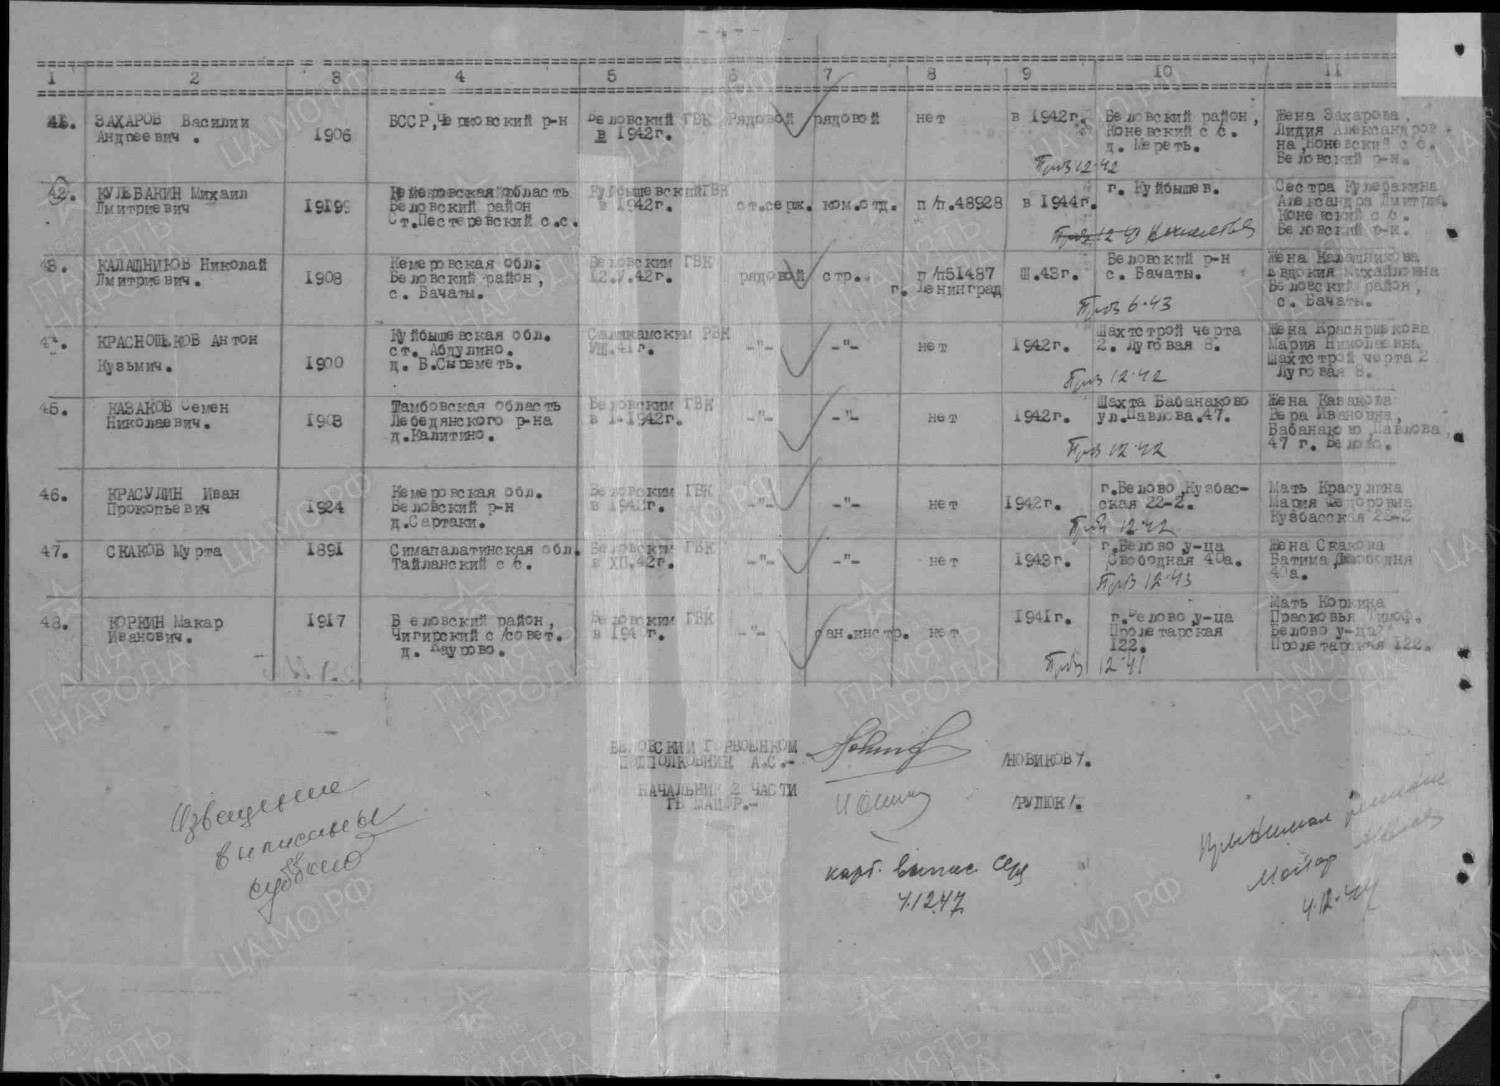 1 2 3 4 5 6 7 8 9 10 11
41. ЗАХАРОВ Василий Андреевич. 1906 БССР, р-н Беловский ГВК в 1942г. Рядовой рядовой нет в 1942г. Беловский район, Коневский с/с. д. Мереть. Жена Захарова Лидия Александровна, Коневский с/с. Беловский р-н.
Проз 12.42
42. КУЛЕБАКИН Михаил Дмитриевич 1919 Кемеровская область Беловский район Ст.Пестеревский с.с. Куйбышевский ГВК в 1942г. ст.серж. ком.отд. п/п.48928 в 1944г. г. Куйбышев. Сестра Кулебакина Александра Дмитрие. Коневский с/с. Беловский р-н.
43. КАЛАШНИКОВ Николай Дмитриевич. 1908 Кемеровская обл. Беловский район, с. Бачаты. Беловским ГВК 12.У.42г. рядовой стр. п/п51487 г. Ленинград Ш.43г. Беловский р-н с. Бачаты. Жена Калашникова Евдокия Михайловна Беловский район, с. Бачаты.
Проз 6.43
44. КРАСНОЩЕКОВ Антон Кузьмич. 1900 Куйбышевская обл. ст. Абдулино. д. В.Сыреметь. РВК УШ.41г. -"- -"- нет 1942г. Шахтстрой черта 2. Луговая 8. Жена Мария Николаевна Шахтстрой черта 2 Луговая 8.
Проз 12.42
45. КАЗАКОВ Семен Николаевич. 1903 Тамбовская область Лебедянского р-на д.Калитино. Беловским ГВК в 1.1942г. -"- -"- нет 1942г. Шахта Бабанаково ул.Павлова.47. Жена Казакова Вера Ивановна, Бабанаково Павлова 47 г. Белово.
Проз 12.42
46. КРАСУЛИН Иван Прокопьевич 1924 Кемеровская обл. Беловский р-н д.Сартаки. Беловским ГВК в 1942г. -"- -"- нет 1942г. г.Белово,Кузбасская 22-2. Мать Красулина Мария Федоровна Кузбасская 22-2
Проз 12.42
47. СКАКОВ Мурта 1891 Симапалатинская обл. Тайланский с/с. Беловским ГВК в ХП.42г. -"- -"- нет 1943г. г.Белово,у-ца Свободная 40а. Жена Скакова Батима 40а.
Проз 12.43
48. КОРКИН Макар Иванович. 1917 Беловский район, Чигирский с/совет. д. Каурово. Беловским ГВК -"- сан.инстр. нет 1941г. г.Белово,у-ца Пролетарская 122. Мать Коркина Прасковья Тимоф. Белово у-ца Пролетарская 122.
Проз 12.41
БЕЛОВСКИЙ ГОРВОЕНКОМ
ПОДПОЛКОВНИК А.С.- /НОВИКОВ/.
НАЧАЛЬНИК 2 ЧАСТИ
ГВ МАЙОР.- /РУДЮК/.
Извещение
выписаны
карт. выпис.
4.12.47
Майор
4.12.47